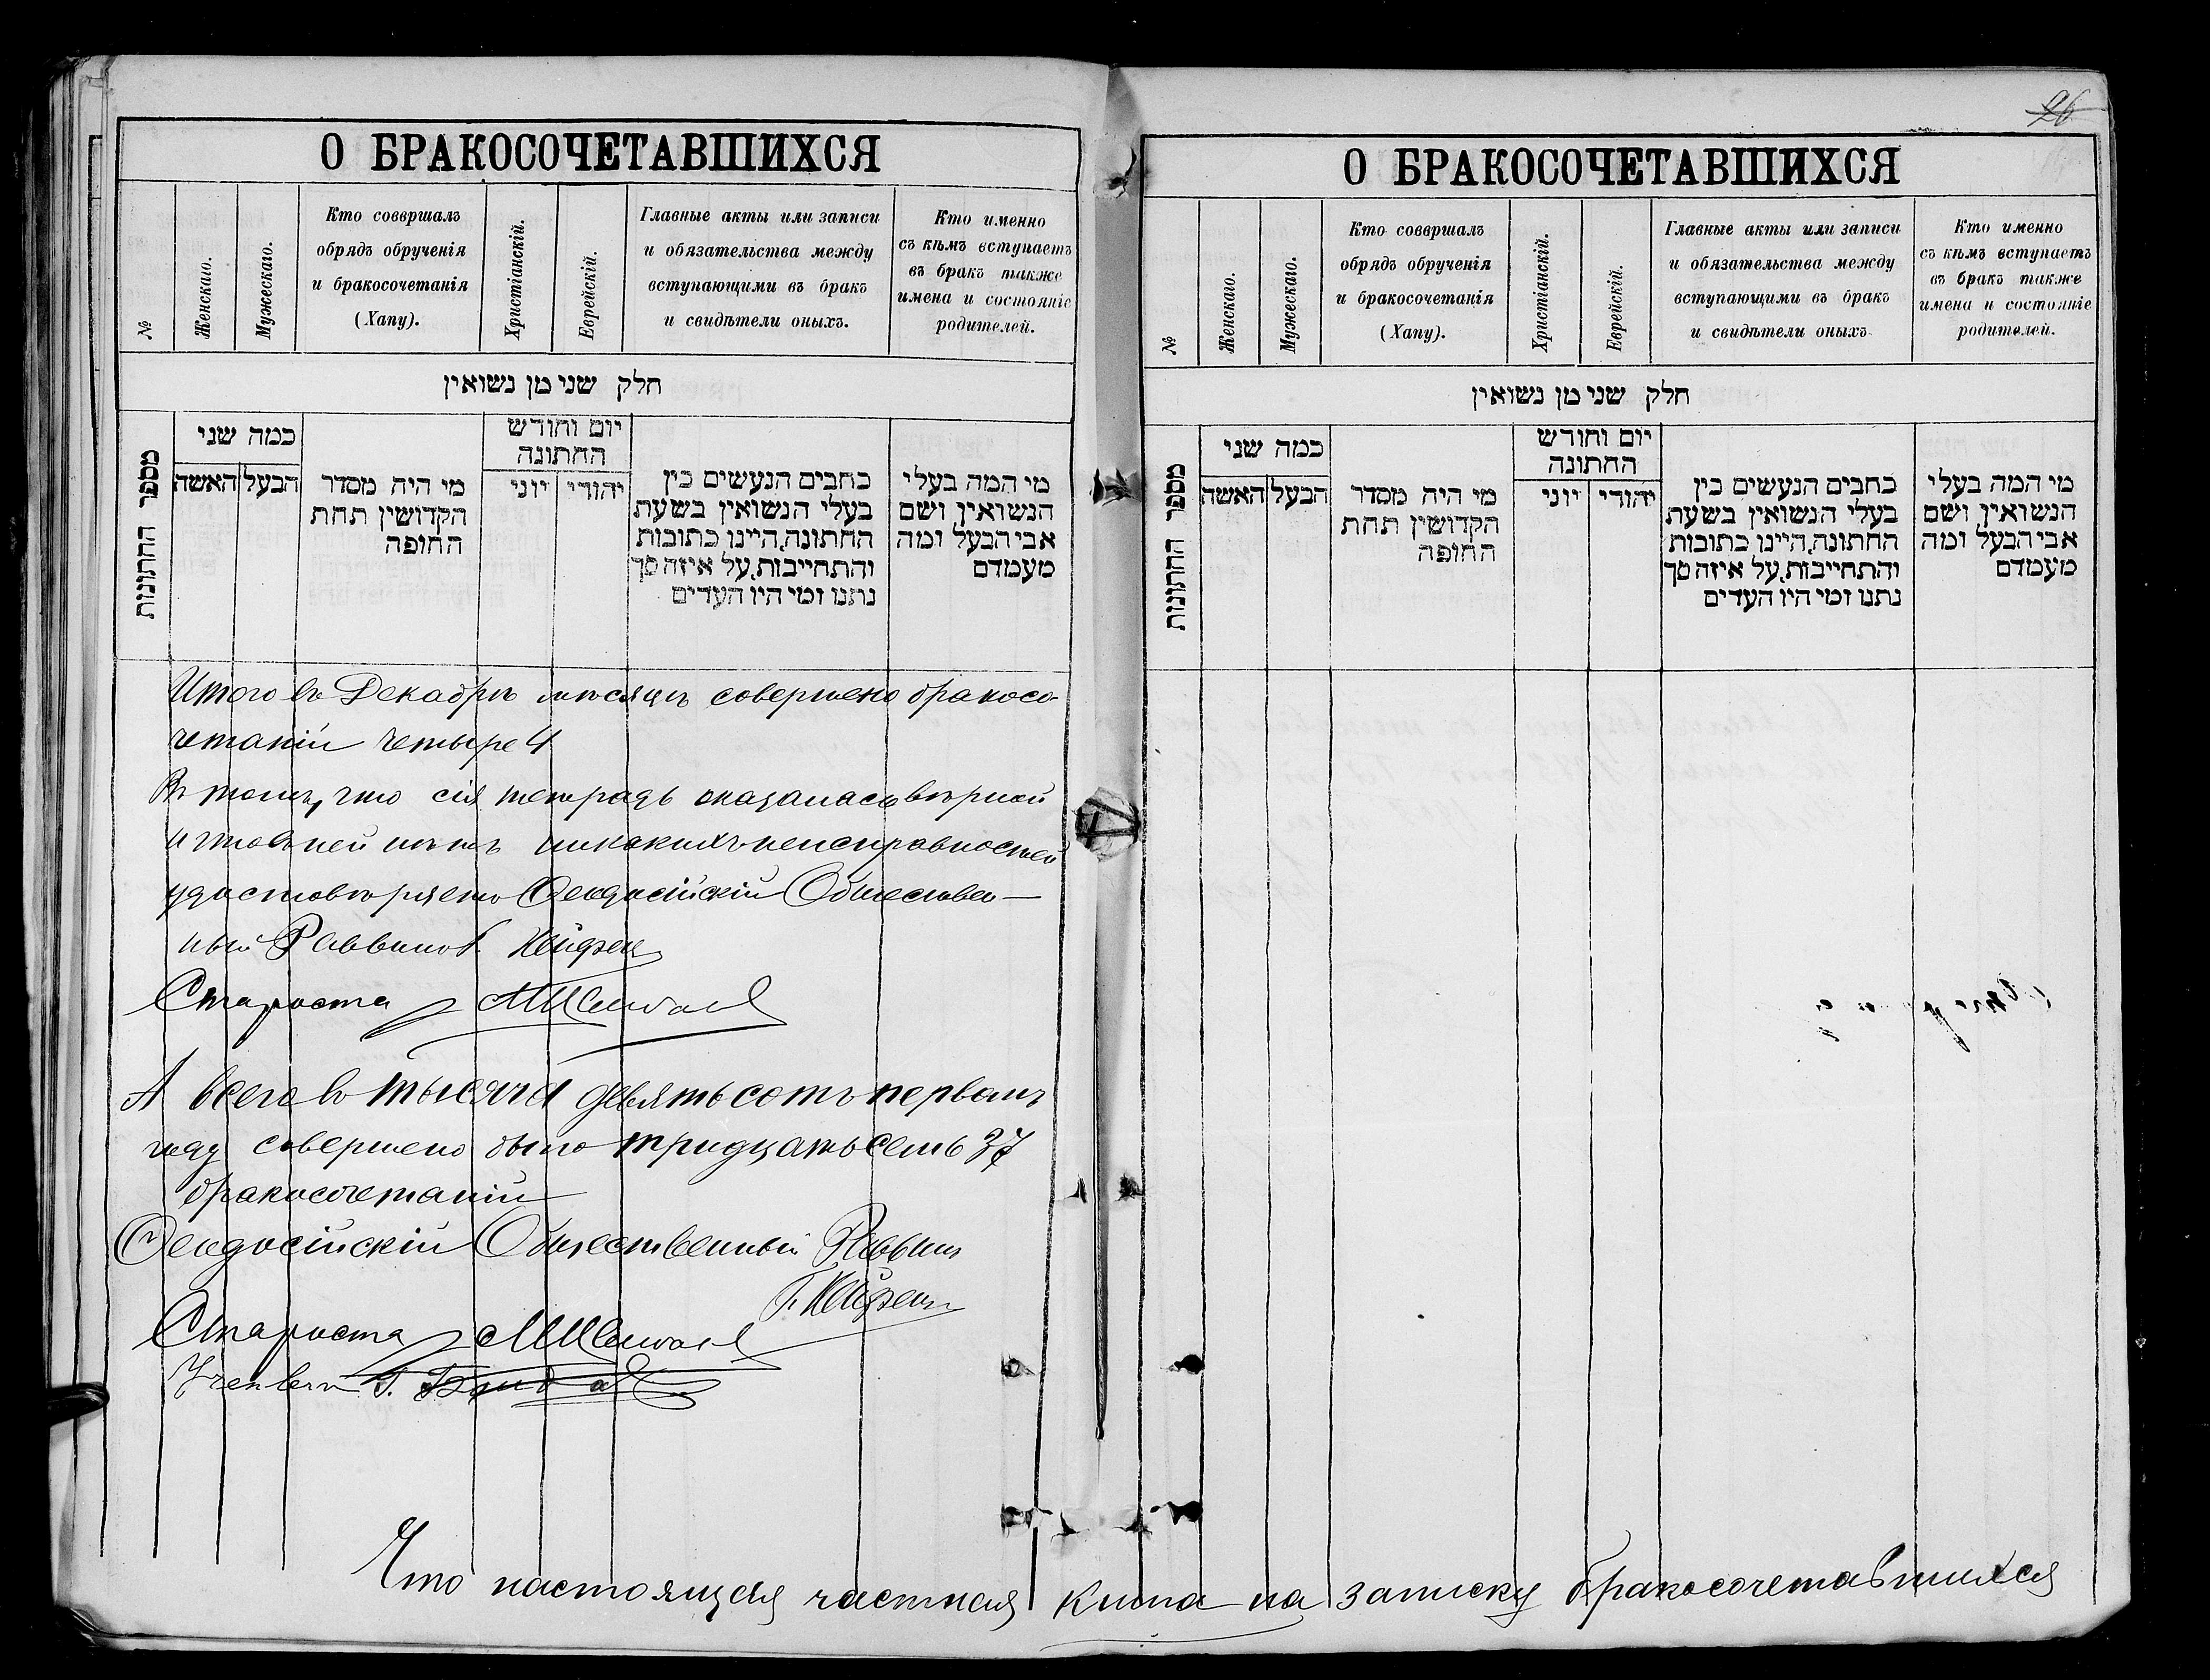 26
О БРАКОСОЧЕТАВШИХСЯ
№
Женскаго.
Мужескаго.
Кто соввршалъ
обрядъ обрученія
и бракосочетанія
(Хапу).
Христіанскій.
Еврейскій.
Главные акты или записи
и обязательства между
вступающими въ бракъ
и свидѣтели оныхъ.
Кто именно
съ кѣмъ вступаетъ
въ бракъ также
имена и состояніе
родителей.
חלק שני מן נשואין
מספר החתונות
כמה שני
האשה
הבעל
מי היה מסדר
הקדושין תחת
החופה
יום וחודש
החתונה
יוני
יהודי
כתבים הנעשים בין
בעלי הנשואין בשעת
החתונה, היינו כתובות
והתחייבות, על איזה סך
נתנו ומי היו העדים
מי המה בעלי
הנשואין ושם
אבי הבעל ומה
מעמדם
Итого въ Декабрѣ мѣсяцѣ совершено бракосо-
четаній четыре 4
Въ томъ, что сія тетрадь оказалась вѣрной
и что въ ней нѣтъ никакихъ неисправностей
удостовѣряетъ Ѳеодосійскій Обществен-
ный Раввинъ Г. Хейфец
Староста
А всего въ тысяча девятьсотъ первомъ
году совершено было тридцать семь 37
бракосочетаній
Ѳеодосійскій Общественный Раввинъ
Г. Хейфецъ
Староста
О БРАКОСОЧЕТАВШИХСЯ
№
Женскаго.
Мужескаго.
Кто соввршалъ
обрядъ обрученія
и бракосочетанія
(Хапу).
Христіанскій.
Еврейскій.
Главные акты или записи
и обязательства между
вступающими въ бракъ
и свидѣтели оныхъ
Кто именно
съ кѣмъ вступаетъ
въ бракъ также
имена и состояніе
родителей.
חלק שני מן נשואין
מספר החתונות
כמה שני
האשה
הבעל
מי היה מסדר
הקדושין תחת
החופה
יום וחודש
החתונה
יוני
יהודי
כתבים הנעשים בין
בעלי הנשואין בשעת
החתונה, היינו כתובות
והתחייבות, על איזה סך
נתנו ומי היו העדים
מי המה בעלי
הנשואין ושם
אבי הבעל ומה
מעמדם
Что настоящая частная книга на записку бракосочетавшихся